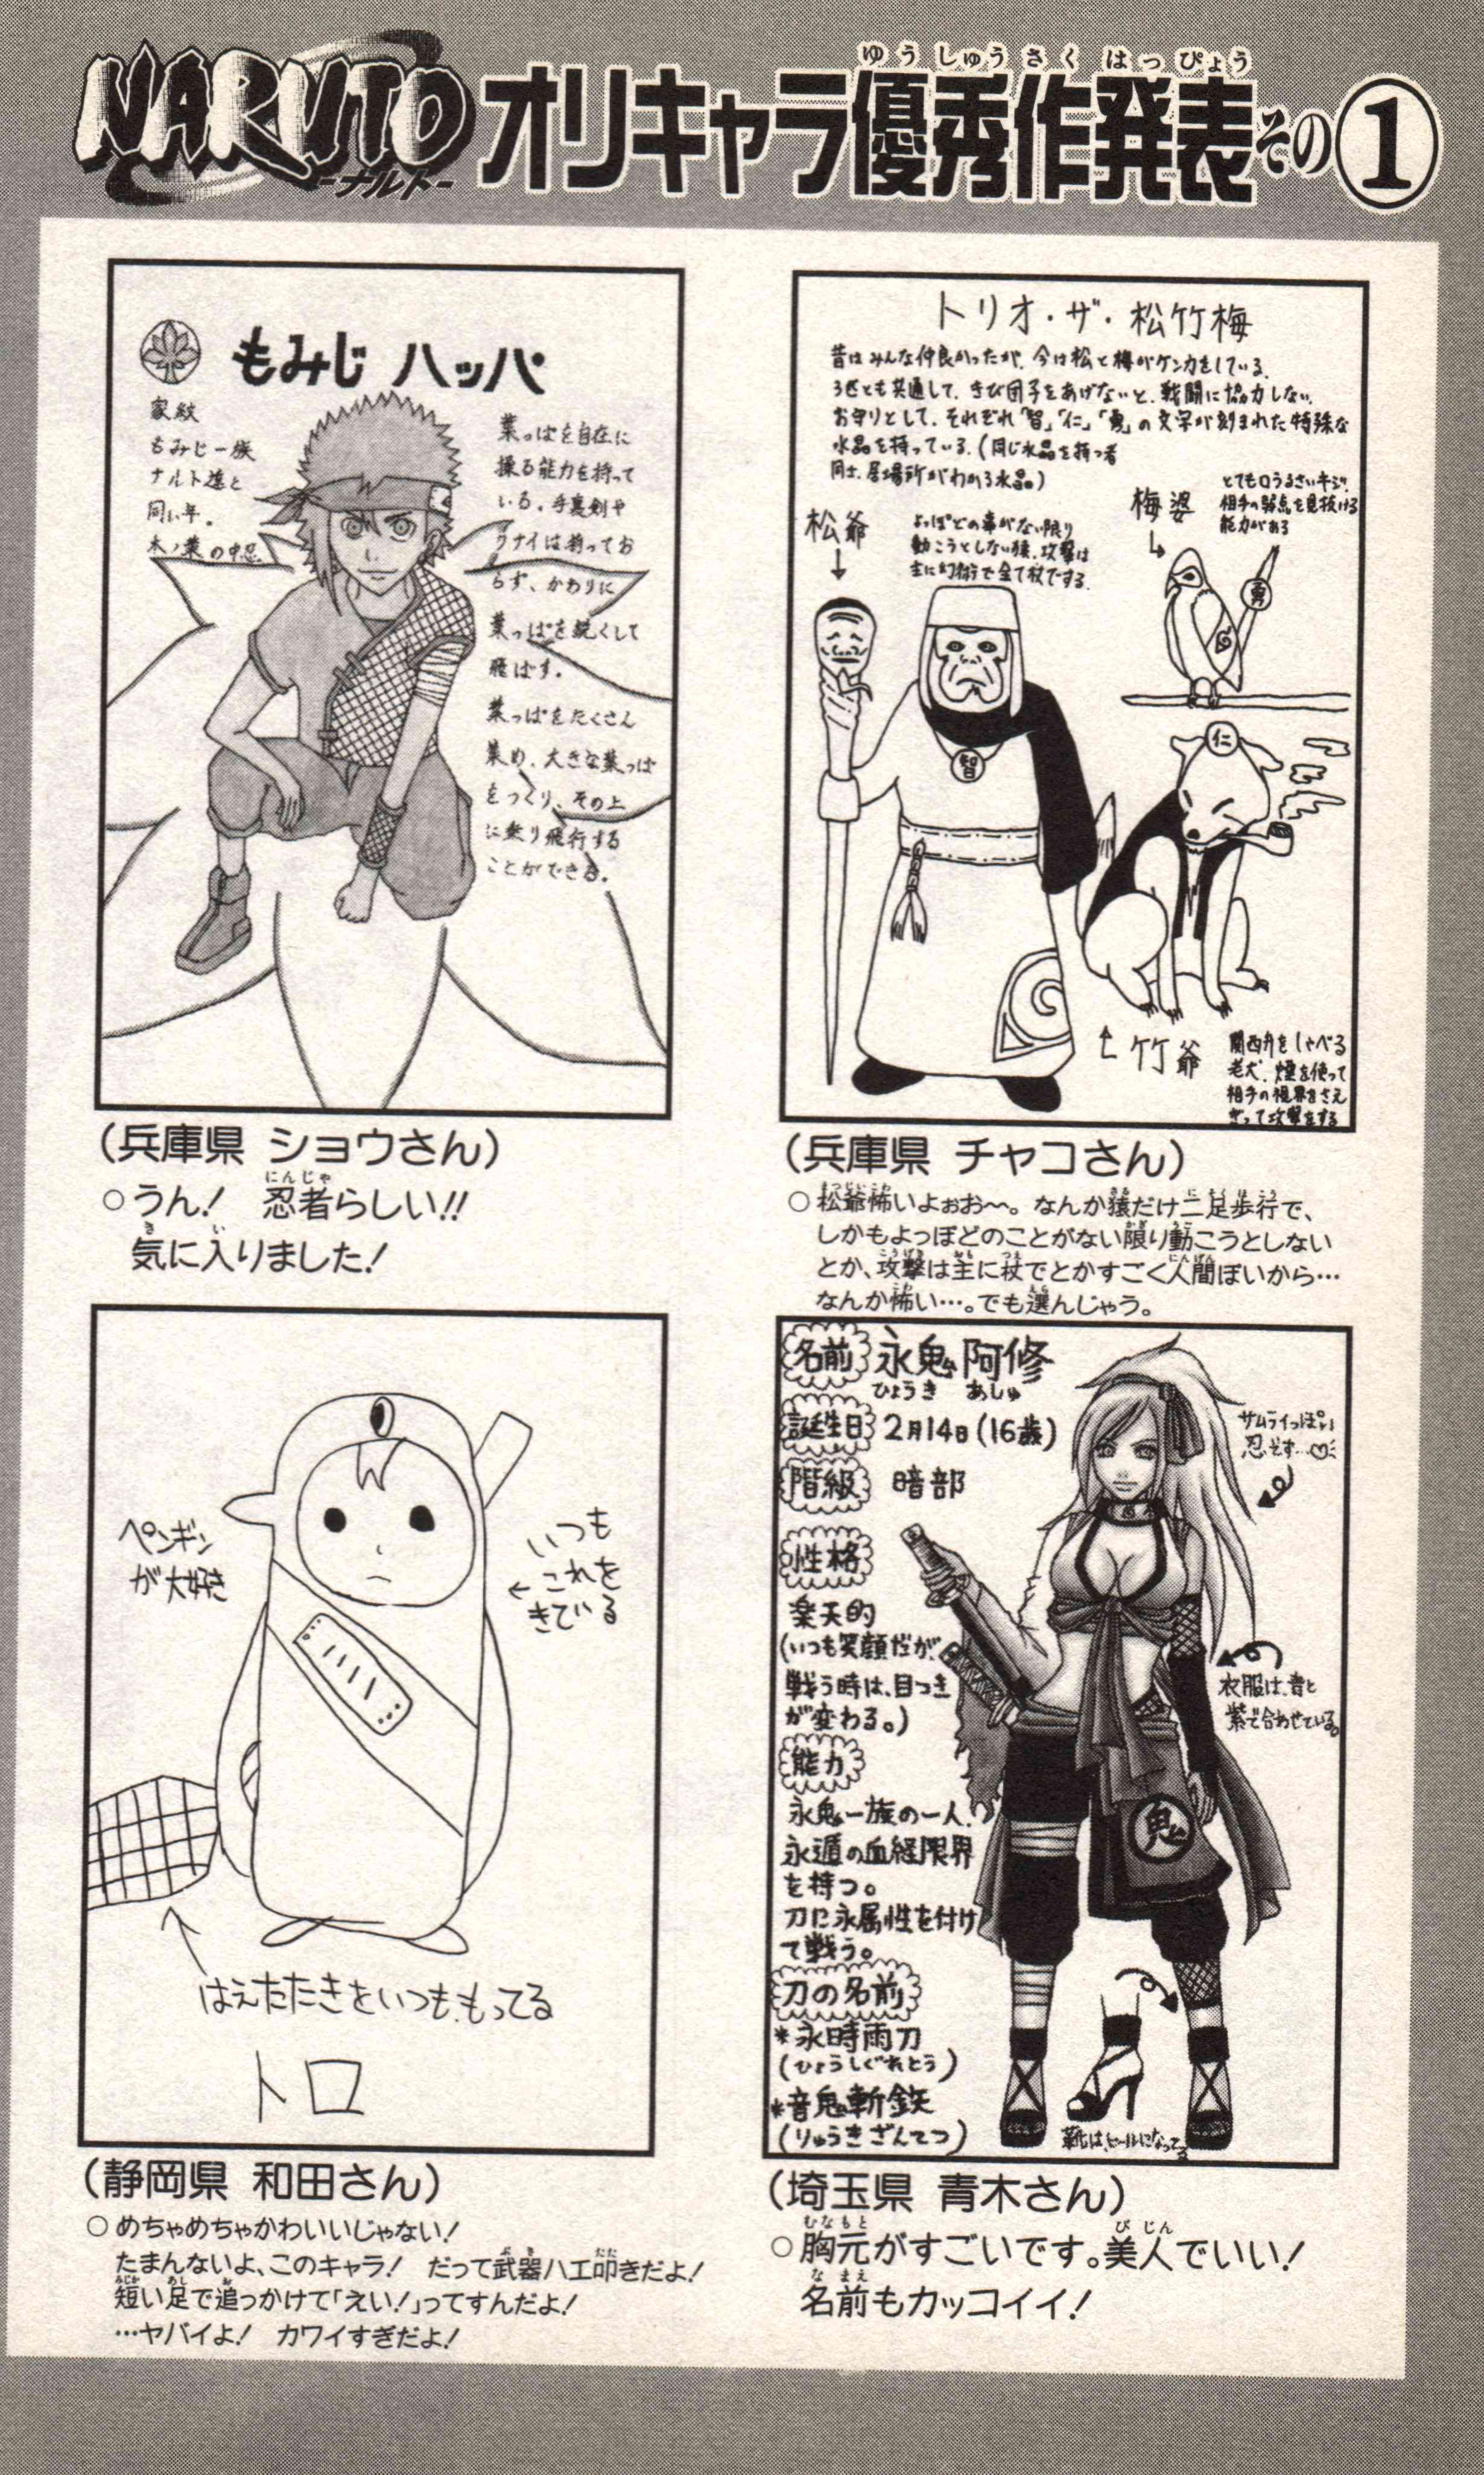 NARUTO
-ナルト-
オリキャラ優秀作発表その①
ゆうしゅうさくはっぴょう
もみじ ハッパ
家紋
もみじ一族
ナルト達と
同い年。
木ノ葉の中忍
葉っぱを自在に
操る能力を持って
いる。手裏剣や
クナイは持ってお
らず、かわりに
葉っぱを鋭くして
飛ばす。
葉っぱをたくさん
集め、大きな葉っぱ
をつくり、その上
に乗り飛行する
ことができる。
(兵庫県 ショウさん)
○うん! 忍者らしい!!
にんじゃ
気に入りました!
き い
トリオ・ザ・松竹梅
昔はみんな仲良かったが、今は松と梅がケンカをしている。
3匹とも共通して、きび団子をあげないと、戦闘に協力しない。
お守りとして、それぞれ「智」「仁」「勇」の文字が刻まれた特殊な
水晶を持っている。(同じ水晶を持つ者
同士、居場所がわかる水晶。)
松爺
よっぽどの事がない限り
動こうとしない猿。攻撃は
主に幻術で全て杖でする。
梅婆
とても口うるさいキジ。
相手の弱点を見抜ける
能力がある
勇
智
仁
竹爺
関西弁をしゃべる
老犬。煙を使って
相手の視界をさえ
ぎって攻撃をする
(兵庫県 チャコさん)
○松爺怖いよぉお~。なんか猿だけ二足歩行で、
しかもよっぽどのことがない限り動こうとしない
とか、攻撃は主に杖でとかすごく人間ぽいから…
なんか怖い…。でも選んじゃう。
ペンギン
が大好き
いつも
これを
きている
はえたたきをいつももってる
トロ
(静岡県 和田さん)
○めちゃめちゃかわいいじゃない!
たまんないよ、このキャラ! だって武器ハエ叩きだよ!
短い足で追っかけて「えい!」ってすんだよ!
…ヤバイよ! カワイすぎだよ!
名前 氷鬼 阿修
ひょうき あしゅ
誕生日 2月14日(16歳)
階級 暗部
性格
楽天的
(いつも笑顔だが、
戦う時は、目つき
が変わる。)
能力
氷鬼一族の一人。
氷遁の血継限界
を持つ。
刀に氷属性を付け
て戦う。
刀の名前
*氷時雨刀
(ひょうしぐれとう)
(りゅうきざんてつ)
サムライっぽい
忍です…♡
衣服は、青と
紫で合わせている。
鬼
靴は、ヒールになってる
(埼玉県 青木さん)
○胸元がすごいです。美人でいい!
むなもと びじん
名前もカッコイイ!
なまえ